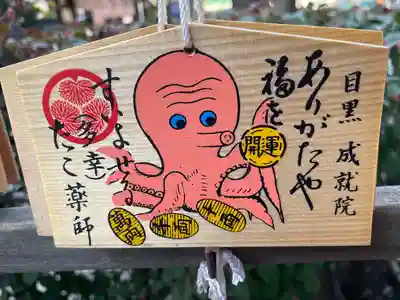 目黒 成就院
ありがたや
福を
すいよせる
多幸
たこ薬師
開運